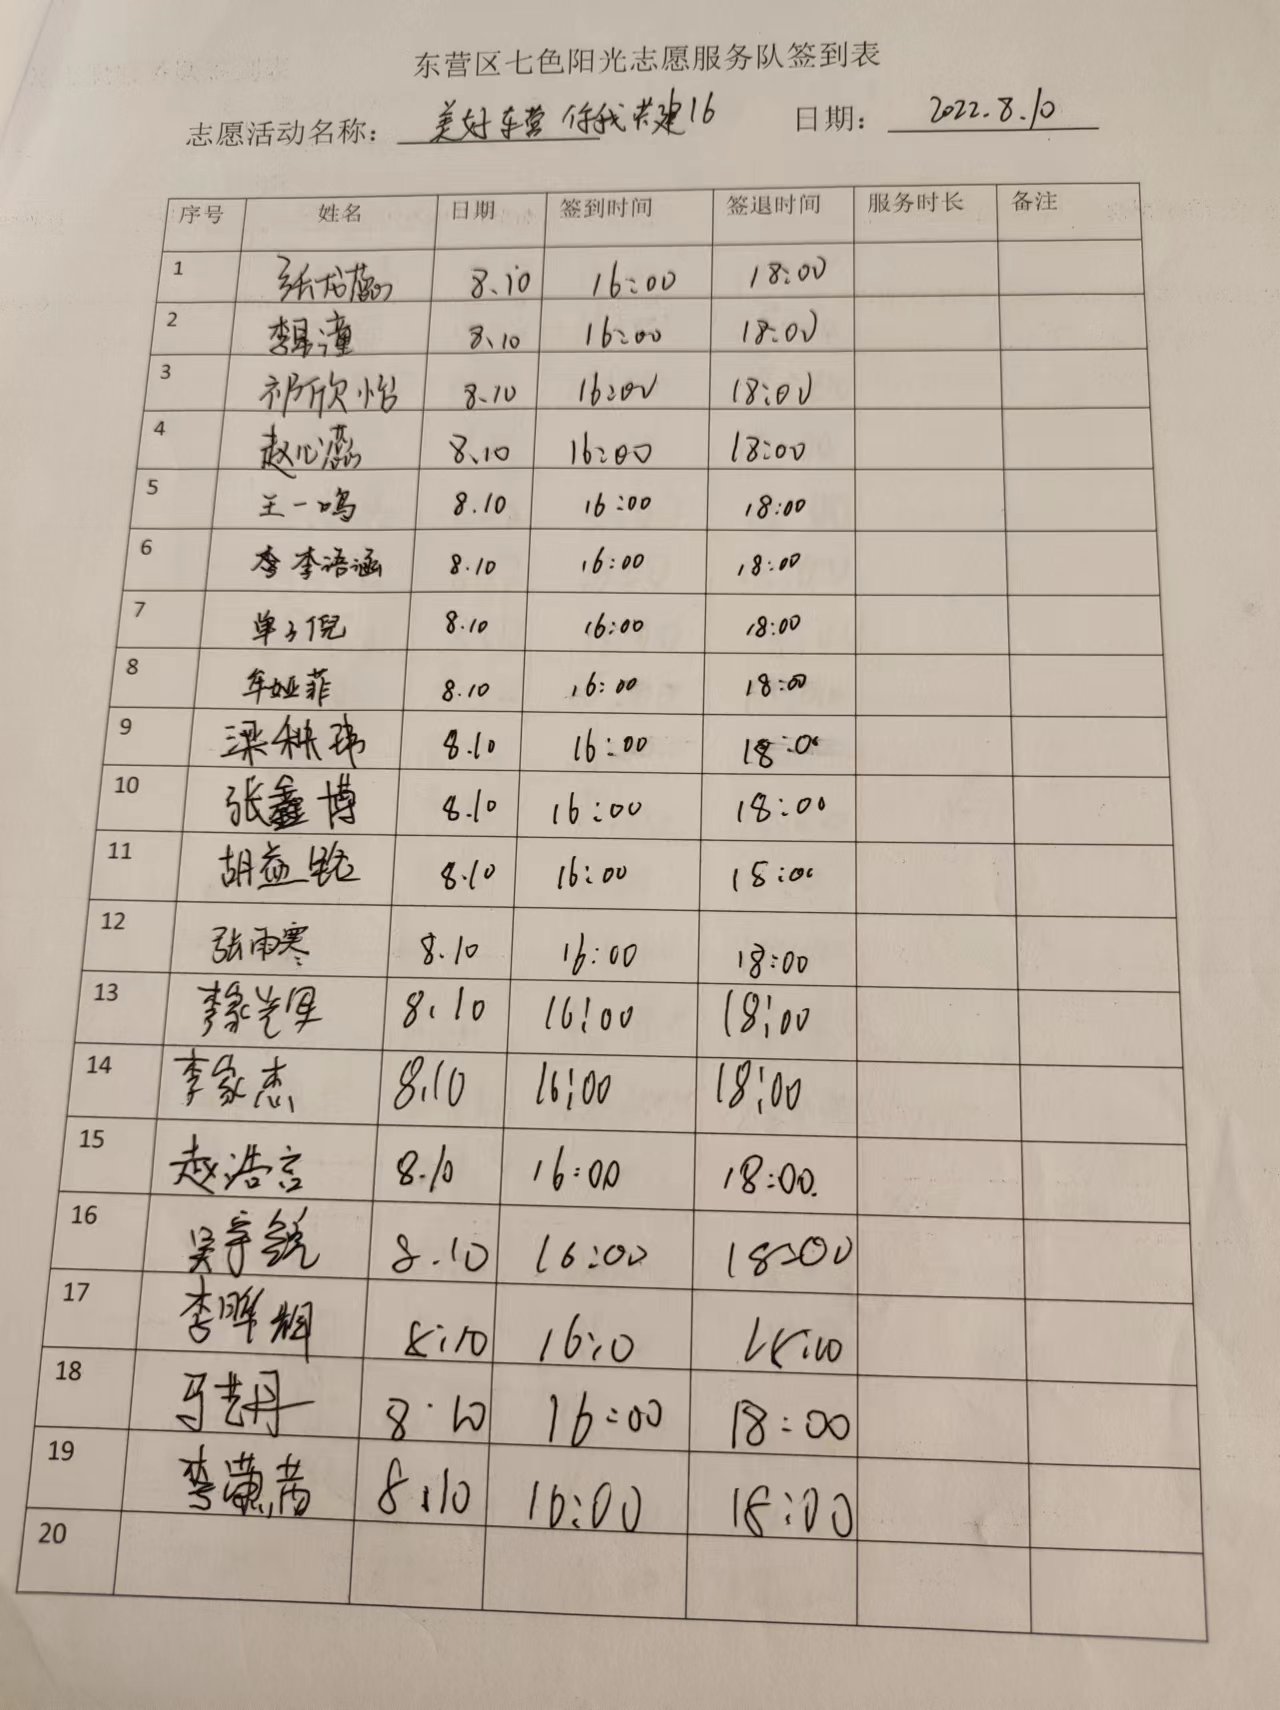 东营区七色阳光志愿服务队签到表
志愿活动名称： 美好东营 你我共建16 日期： 2022.8.10
序号 姓名 日期 签到时间 签退时间 服务时长 备注
1 张龙蕊 8.10 16:00 18:00
2 李昜潼 8.10 16:00 18:00
3 祁欣怡 8.10 16:00 18:00
4 赵心蕊 8.10 16:00 18:00
5 王一鸣 8.10 16:00 18:00
6 李语涵 8.10 16:00 18:00
7 单子倪 8.10 16:00 18:00
8 牟娅菲 8.10 16:00 18:00
9 梁秩玮 8.10 16:00 18:00
10 张鑫博 8.10 16:00 18:00
11 胡益铭 8.10 16:00 18:00
12 张雨寒 8.10 16:00 18:00
13 李家 8.10 16:00 18:00
14 李家杰 8.10 16:00 18:00
15 赵浩言 8.10 16:00 18:00
16 吴宇锐 8.10 16:00 18:00
17 李晖翔 8:10 16:0
18 马艺丹 8.10 16:00 18:00
19 李潇茜 8.10 16:00 18:00
20